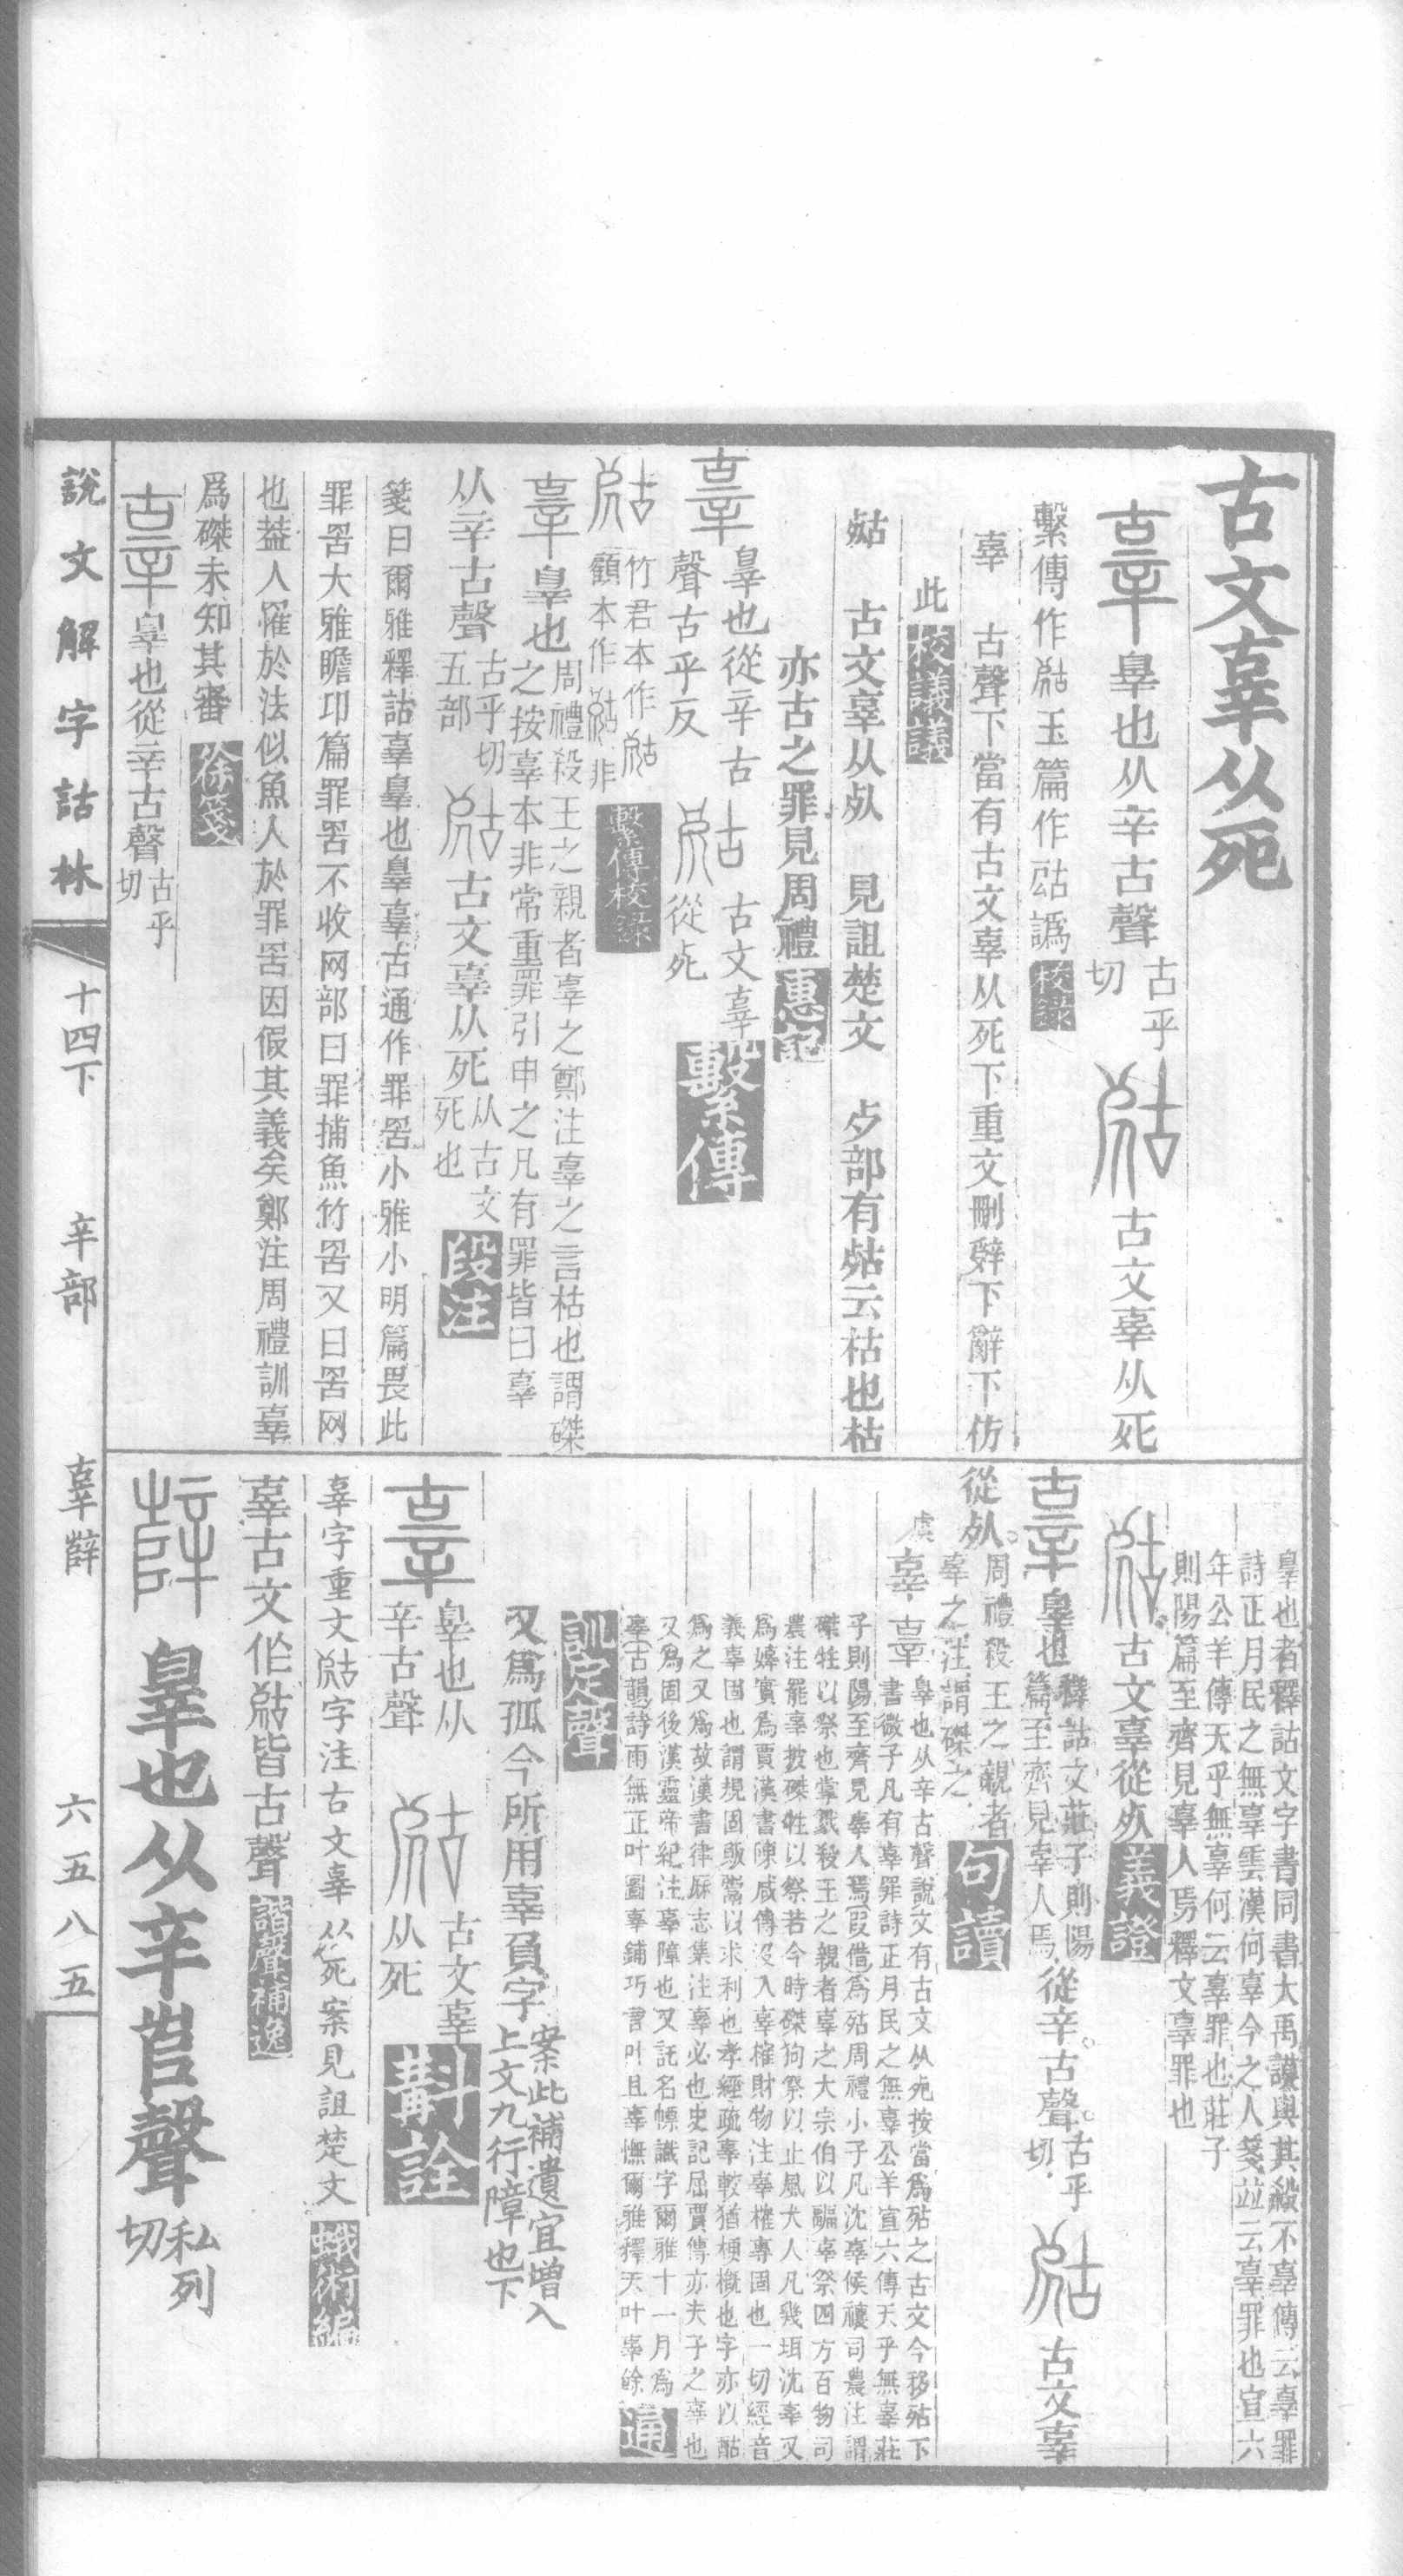 古文辜从死
辜辠也从辛古聲古乎切𦠆古文辜从死
繫傳作𦠆玉篇作𦙶譌校錄
辜 古聲下當有古文辜从死下重文刪辤下辭下仿
此校議議
𣨍 古文辜从𣦸 見詛楚文 歺部有𣨍云枯也枯
亦古之罪見周禮惠記
辜辠也從辛古聲古乎反 古文辜從死繫傳
竹君本作 顧本作 非繫傳校錄
辜辠也周禮殺王之親者辜之鄭注辜之言枯也謂磔之按辜本非常重罪引申之凡有罪皆曰辜
从辛古聲古乎切五部 古文辜从死从古文死也段注
箋曰爾雅釋詁辜辠也辠辜古通作罪罟小雅小明篇畏此
罪罟大雅瞻卬篇罪罟不收网部曰罪捕魚竹罟又曰罟网
也葢人罹於法似魚入於罪罟因假其義矣鄭注周禮訓辜
爲磔未知其審徐箋
辜辠也從辛古聲古乎切
辠也者釋詁文字書同書大禹謨與其殺不辜傳云辜罪
詩正月民之無辜雲漢何辜今之人箋並云辜罪也宣六
年公羊傳天乎無辜何云辜罪也莊子
則陽篇至齊見辜人焉釋文辜罪也
古文辜從𣦸義證
辜辠也釋詁文莊子則陽篇至齊見辜人焉從辛古聲古乎切 古文辜
從𣦸周禮殺王之親者辜之注謂磔之句讀
虞辜辜辠也从辛古聲說文有古文从死按當爲𣨍之古文今移𣨍下
書微子凡有辜罪詩正月民之無辜公羊宣六傳天乎無辜莊
子則陽至齊見辜人焉叚借爲𣨍周禮小子凡沈辜候禳司農注謂
磔牲以祭也掌戮殺王之親者辜之大宗伯以疈辜祭四方百物司
農注罷辜披磔牲以祭若今時磔狗祭以止風犬人凡幾珥沈辜又
爲嫴實爲賈漢書陳咸傳沒入辜榷財物注辜榷專固也一切經音
義辜固也謂規固販鬻以求利也孝經疏辜較猶梗槪也字亦以酤
爲之又爲故漢書律厤志集注辜必也史記屈賈傳亦夫子之辜也
又爲固後漢靈帝紀注辜障也又託名幖識字爾雅十一月爲
辜古韻詩雨無正叶圖辜鋪巧言叶且辜憮爾雅釋天叶辜餘通
訓定聲
又爲孤今所用辜負字案此補遺宜增入上文九行障也下
辜辠也从辛古聲 古文辜从死斠詮
辜字重文𦠆字注古文辜从死案見詛楚文蛾術編
辜古文作𦠆皆古聲諧聲補逸
辥辠也从辛𡴎聲私列切
說文解字詁林 十四下 辛部 辜辥 六五八五